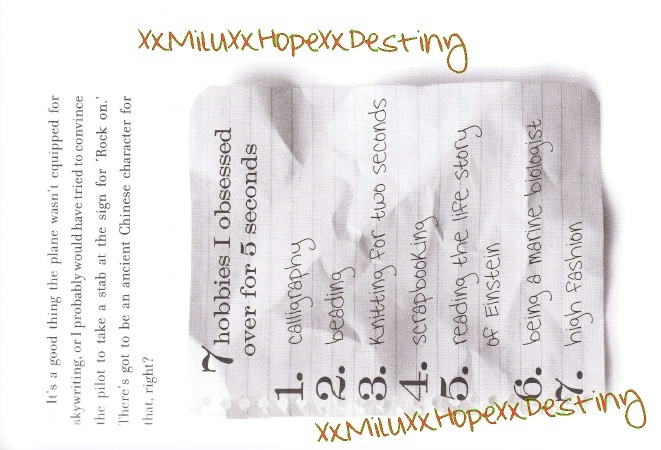 xxMiluxxHopexxDestiny
It's a good thing the plane wasn't equipped for
skywriting, or I probably would have tried to convince
the pilot to take a stab at the sign for 'Rock on.'
There's got to be an ancient Chinese character for
that, right?
7 hobbies I obsessed
over for 5 seconds
1. calligraphy
2. beading
3. knitting for two seconds
4. scrapbooking
5. reading the life story
of Einstein
6. being a marine biologist
7. high fashion
xxMiluxxHopexxDestiny